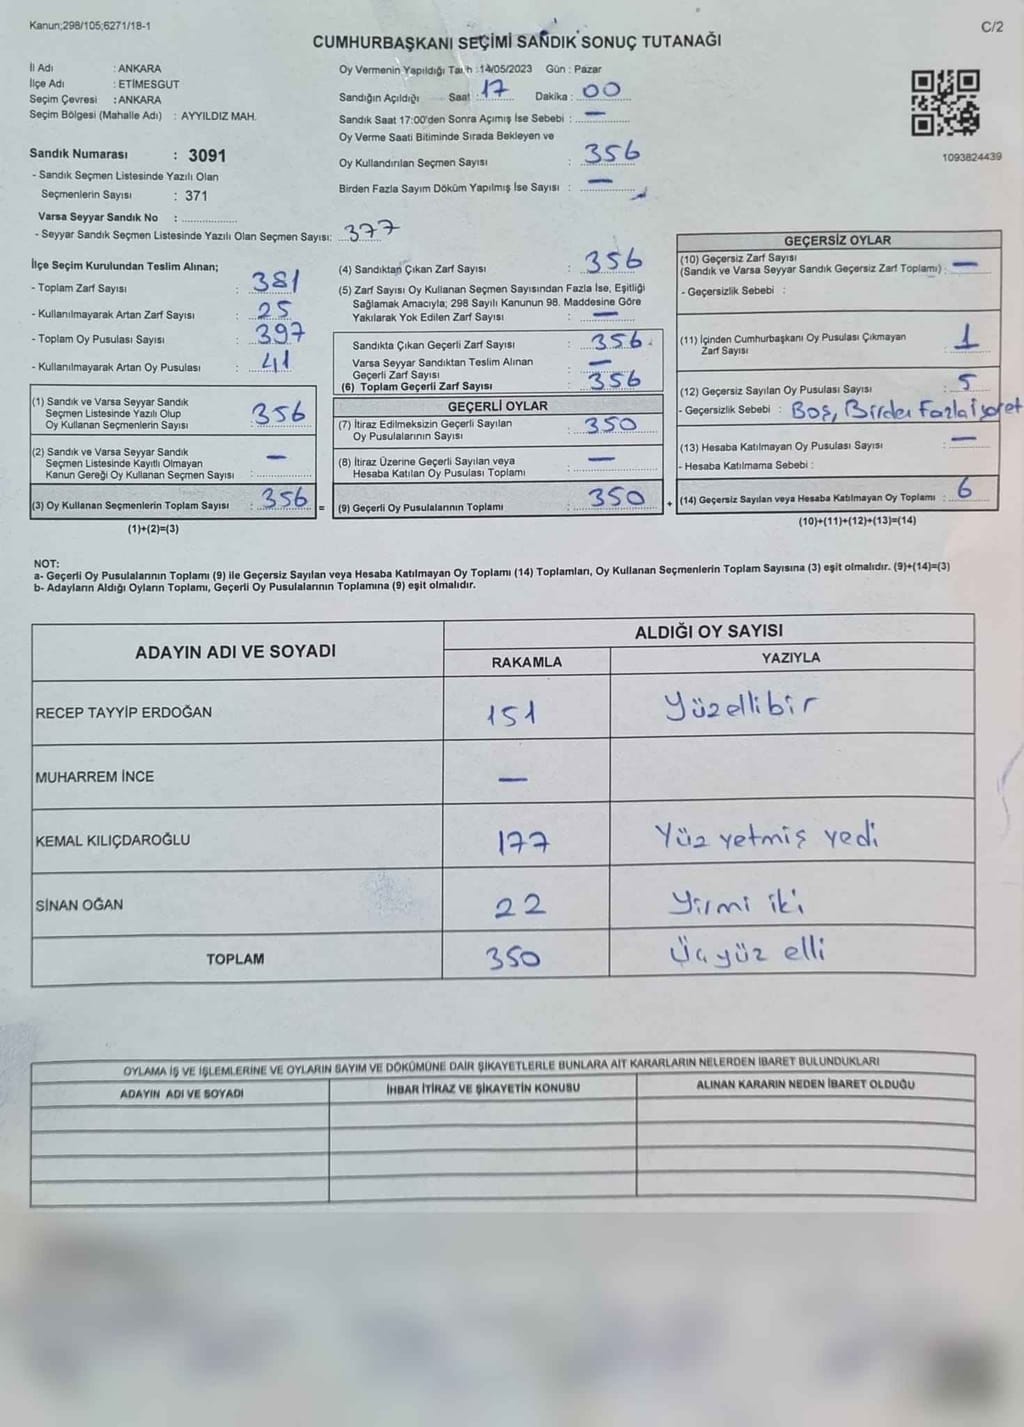 Kanun;298/105;6271/18-1
C/2
CUMHURBAŞKANI SEÇİMİ SANDIK SONUÇ TUTANAĞI
İl Adı : ANKARA
İlçe Adı : ETİMESGUT
Seçim Çevresi : ANKARA
Seçim Bölgesi (Mahalle Adı) : AYYILDIZ MAH.
Sandık Numarası : 3091
- Sandık Seçmen Listesinde Yazılı Olan
Seçmenlerin Sayısı : 371
Varsa Seyyar Sandık No :
- Seyyar Sandık Seçmen Listesinde Yazılı Olan Seçmen Sayısı: 377
Oy Vermenin Yapıldığı Tarih :14/05/2023 Gün : Pazar
Sandığın Açıldığı Saat : 17 Dakika : 00
Sandık Saat 17:00'den Sonra Açımış İse Sebebi : —
Oy Verme Saati Bitiminde Sırada Bekleyen ve
Oy Kullandırılan Seçmen Sayısı : 356
Birden Fazla Sayım Döküm Yapılmış İse Sayısı : —
1093824439
İlçe Seçim Kurulundan Teslim Alınan;
- Toplam Zarf Sayısı : 381
- Kullanılmayarak Artan Zarf Sayısı : 25
- Toplam Oy Pusulası Sayısı : 397
- Kullanılmayarak Artan Oy Pusulası : 41
(1) Sandık ve Varsa Seyyar Sandık
Seçmen Listesinde Yazılı Olup
Oy Kullanan Seçmenlerin Sayısı : 356
(2) Sandık ve Varsa Seyyar Sandık
Seçmen Listesinde Kayıtlı Olmayan
Kanun Gereği Oy Kullanan Seçmen Sayısı : —
(3) Oy Kullanan Seçmenlerin Toplam Sayısı : 356 =
(1)+(2)=(3)
(4) Sandıktan Çıkan Zarf Sayısı : 356
(5) Zarf Sayısı Oy Kullanan Seçmen Sayısından Fazla İse, Eşitliği
Sağlamak Amacıyla; 298 Sayılı Kanunun 98. Maddesine Göre
Yakılarak Yok Edilen Zarf Sayısı : —
Sandıkta Çıkan Geçerli Zarf Sayısı : 356
Varsa Seyyar Sandıktan Teslim Alınan
Geçerli Zarf Sayısı : —
(6) Toplam Geçerli Zarf Sayısı : 356
GEÇERLİ OYLAR
(7) İtiraz Edilmeksizin Geçerli Sayılan
Oy Pusulalarının Sayısı : 350
(8) İtiraz Üzerine Geçerli Sayılan veya
Hesaba Katılan Oy Pusulası Toplamı : —
(9) Geçerli Oy Pusulalarının Toplamı : 350 +
GEÇERSİZ OYLAR
(10) Geçersiz Zarf Sayısı
(Sandık ve Varsa Seyyar Sandık Geçersiz Zarf Toplamı) : —
- Geçersizlik Sebebi :
(11) İçinden Cumhurbaşkanı Oy Pusulası Çıkmayan
Zarf Sayısı : 1
(12) Geçersiz Sayılan Oy Pusulası Sayısı : 5
- Geçersizlik Sebebi : Boş, Birden Fazla işaret
(13) Hesaba Katılmayan Oy Pusulası Sayısı : —
- Hesaba Katılmama Sebebi :
(14) Geçersiz Sayılan veya Hesaba Katılmayan Oy Toplamı : 6
(10)+(11)+(12)+(13)=(14)
NOT:
a- Geçerli Oy Pusulalarının Toplamı (9) ile Geçersiz Sayılan veya Hesaba Katılmayan Oy Toplamı (14) Toplamları, Oy Kullanan Seçmenlerin Toplam Sayısına (3) eşit olmalıdır. (9)+(14)=(3)
b- Adayların Aldığı Oyların Toplamı, Geçerli Oy Pusulalarının Toplamına (9) eşit olmalıdır.
ADAYIN ADI VE SOYADI
ALDIĞI OY SAYISI
RAKAMLA YAZIYLA
RECEP TAYYİP ERDOĞAN 151 Yüzellibir
MUHARREM İNCE —
KEMAL KILIÇDAROĞLU 177 Yüz yetmiş yedi
SİNAN OĞAN 22 Yirmi iki
TOPLAM 350 Üçyüz elli
OYLAMA İŞ VE İŞLEMLERİNE VE OYLARIN SAYIM VE DÖKÜMÜNE DAİR ŞİKAYETLERLE BUNLARA AİT KARARLARIN NELERDEN İBARET BULUNDUKLARI
ADAYIN ADI VE SOYADI İHBAR İTİRAZ VE ŞİKAYETİN KONUSU ALINAN KARARIN NEDEN İBARET OLDUĞU